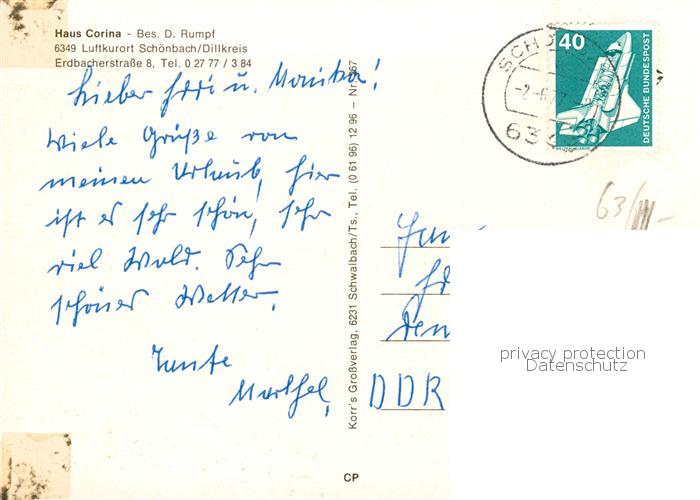 Haus Corina - Bes. D. Rumpf
6349 Luftkurort Schönbach/Dillkreis
Erdbacherstraße 8, Tel. 0 27 77 / 3 84
Lieber u. Monika!
Viele Grüße von
meinen Urlaub, hier
ist es sehr schön, sehr
viel Wald. Sehr
schönes Wetter.
Tante
Marthel,
Korr's Großverlag, 6231 Schwalbach/Ts., Tel. (0 61 96) 12 96 - Nr.
CP
40
DEUTSCHE BUNDESPOST
63/
DDR
privacy protection
Datenschutz